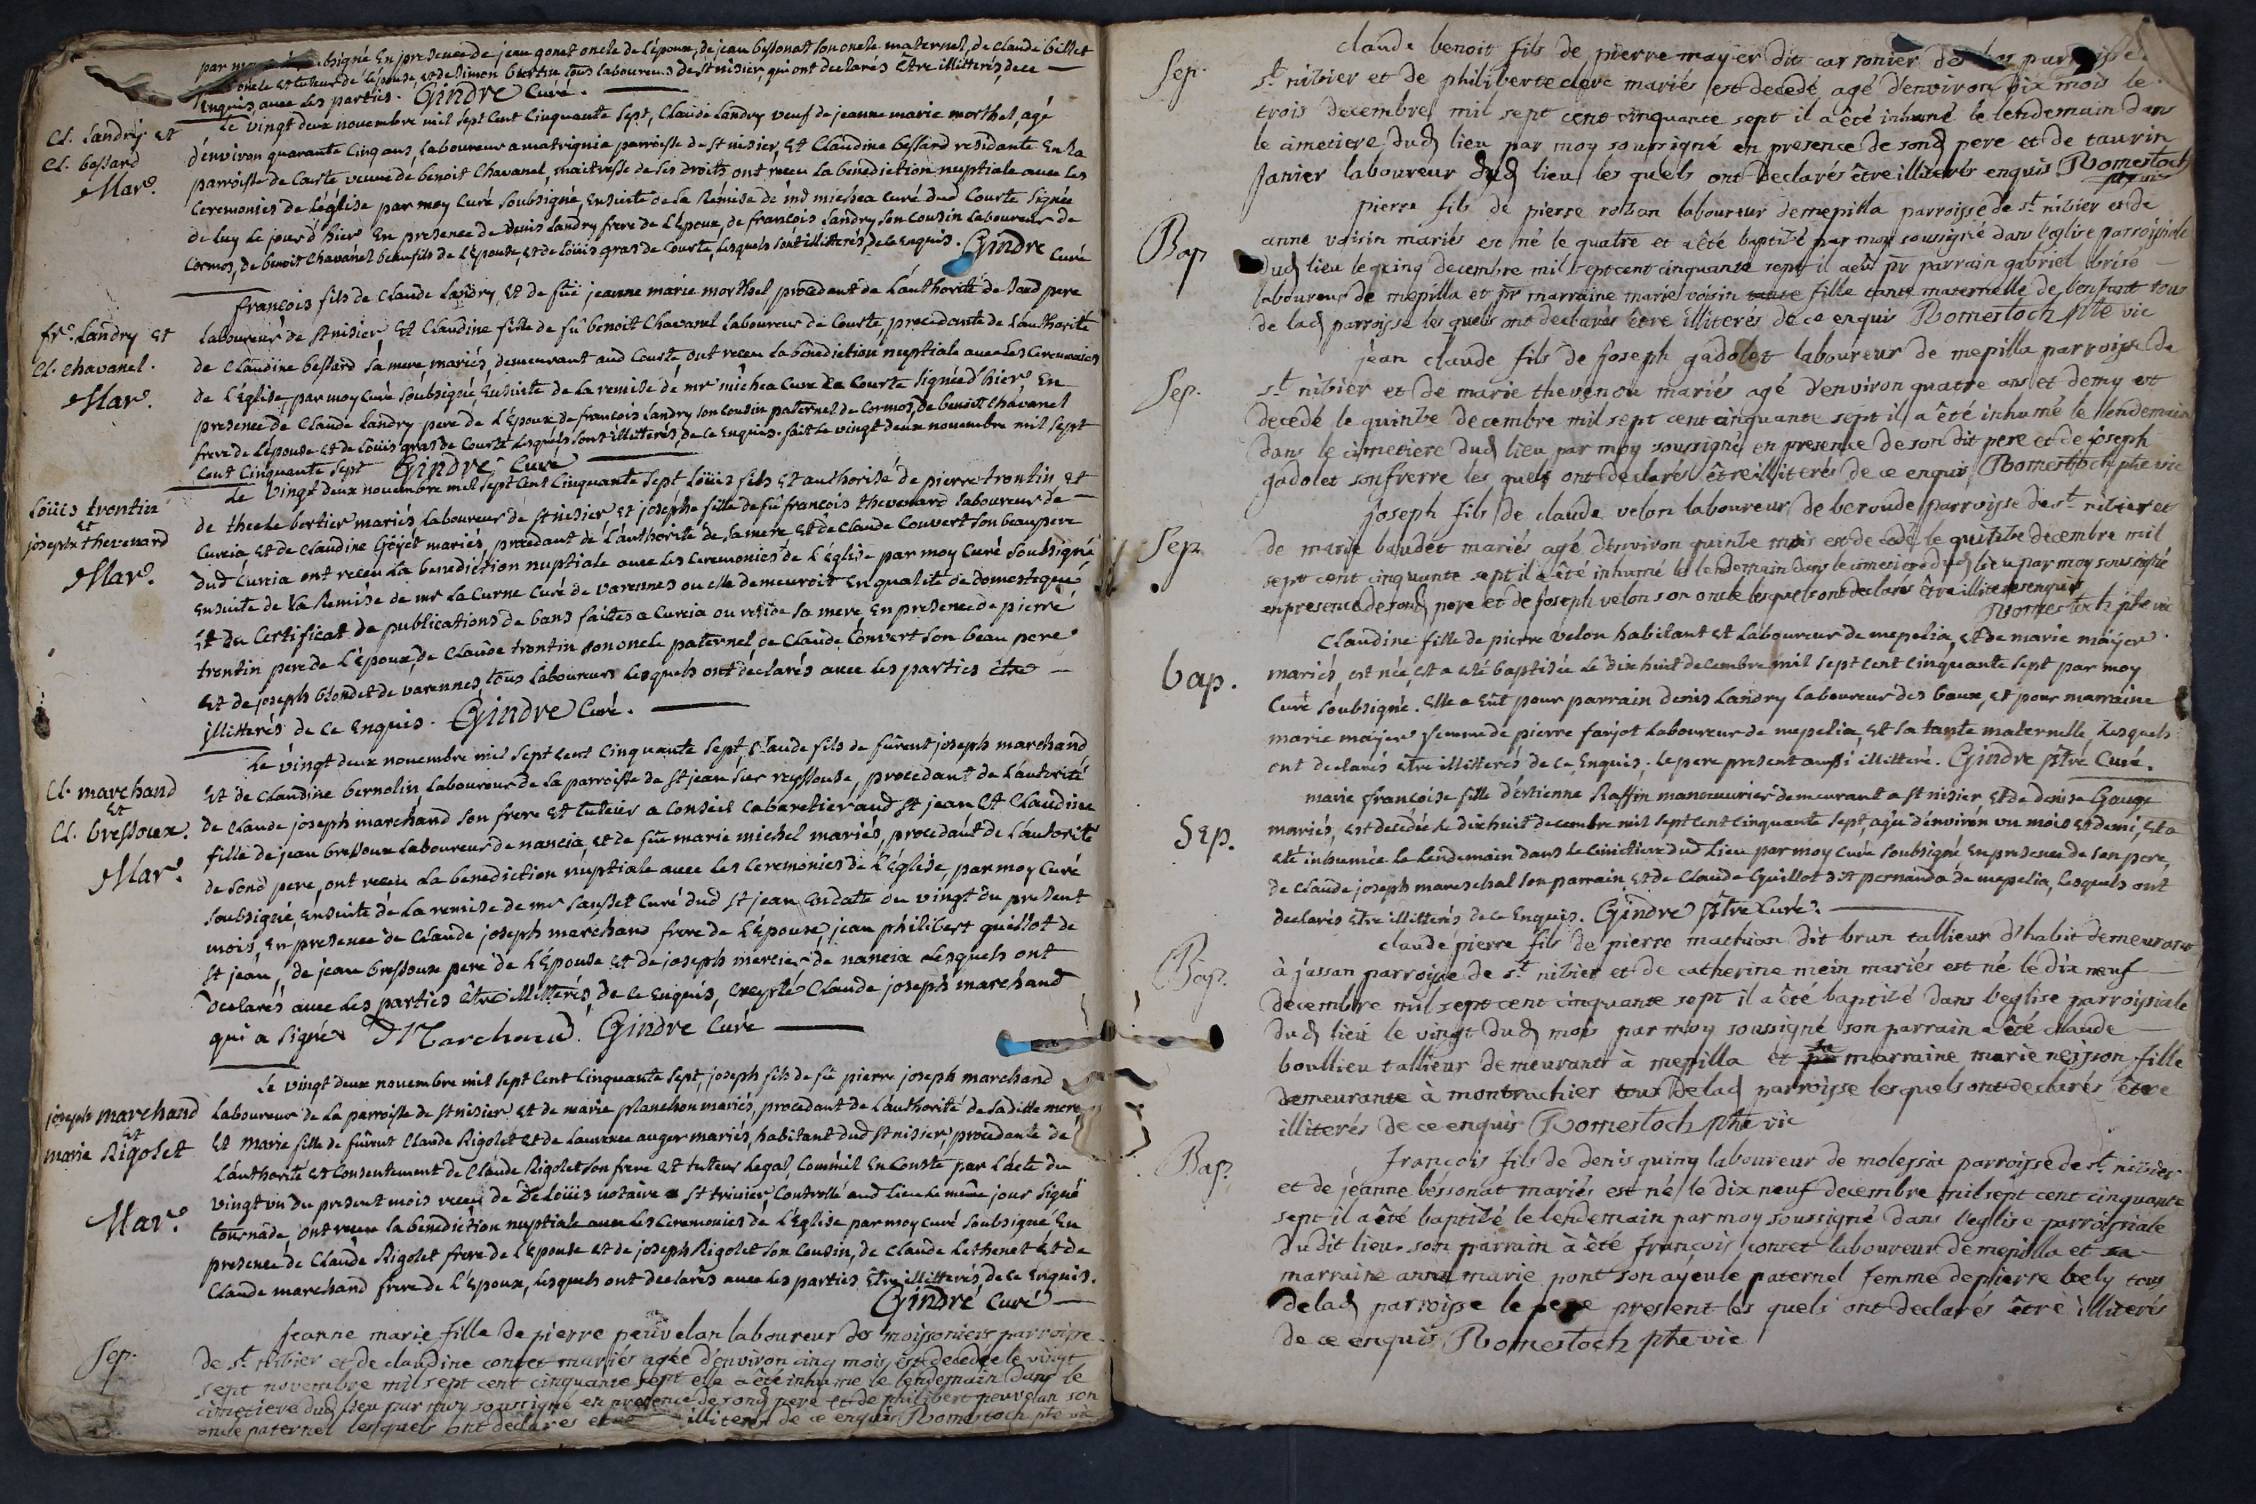 par moy soubsigné En presence de jean gonet oncle de l'épouse, de jean bessonat son oncle maternel, de claude billet
oncle et tuteur de l'épouse, et de simon tous laboureurs de st nisier, qui ont declarés être illitterés, de ce
Enquis avec les parties. Gindre Curé.
Cl. Landry et
Cl. bessard
Mar.
Le vingt deux novembre mil sept Cent Cinquante sept, Claude Landry veuf de jeanne marie morthel, agé
d'environ quarante Cinq ans, laboureur a matrignia parroisse de st nisier, Et Claudine bessard residante En la
parroisse de Courte veuve de benoit Chavanel, maitresse de ses droits, ont reçeu la benediction nuptiale avec les
Ceremonies de l'église par moy Curé soubsigné, Ensuite de la Rémise de md michea Curé dud Courte signée
de luy le jour d'hier En presence de denis Landry frere de l'époux, de françois Landry son Cousin Laboureur de
Cormos, de benoit Chavanel beaufils de l'épouse, et de Loüis gras de Courte, lesquels sont illitterés de ce enquis. Gindre Curé
fr. Landry et
Cl. Chavanel.
Mar.
françois fils de Claude Landry, et de füe jeanne marie morthel, procedant de l'authorité de sond pere
laboureur de st nisier, Et Claudine fille de fû benoit Chavanel laboureur de Courte procedante de l'authorité
de Claudine bessard sa mere mariés, demeurant aud Courte, ont reçeu la bénediction nuptiale avec les Ceremonies
de l'Église, par moy Curé soubsigné, Ensuite de la remise de mr michea Curé de Courte signée d'hier En
presence de Claude Landry pere de l'Époux de françois Landry son Cousin paternel de Cormos, de benoit Chavanel
frere de l'épouse et de Loüis gras de Courte lesquels sont illitterés, de ce Enquis. fait le vingt deux novembre mil sept
Cent Cinquante sept Gindre Curé
Loüis trontin
Et
joseph thevenard
Mar.
Le Vingt deux novembre mil sept Cent Cinquante sept Loüis fils Et authorisé de pierre trontin et
de thecle bertier mariés, laboureur de st nisier et joséphe fille de fû françois thevenard laboureur de
Cureia et de Claudine Goyet mariés, procedant de l'authorité de sa mere, et de Claude Couvert son beau pere
dud Curéia ont reçeu la benediction nuptiale avec les Ceremonies de l'Église par moy Curé Soubsigné
Ensuite de la Remise de mr La Curne Curé de varennes ou elle demeuroit En qualité de domestique
Et du Certificat de publications de bans faites a Cureia ou reside sa mere, En presence de pierre
trontin pere de l'Époux, de Claude trontin son oncle paternel, de Claude Convert son beau pere
et de joseph blondet de varennes, tous Laboureurs Lesquels ont declarés avec les parties être
illitterés de ce Enquis. Gindre Curé.
Cl. marchand
Et
Cl. bressoux.
Mar.
Le vingt deux novembre mil sept cent Cinquante Sept, Claude fils de fûrent joseph marchand
Et de Claudine bernolin, Laboureur de la parroisse de St jean sur reyssouse, procedant de l'autorité
de Claude joseph marchand son frere et tuteur a Conseil Cabaretier aud St jean Et Claudine
fille de jean bressoux Laboureur de nancia, et de füe marie michel mariés, procedant de l'autorité
de sond pere, ont reçeu la benediction nuptiale avec les Ceremonies de l'Église, par moy Curé
soubsigné, Ensuite de la remise de mr Sausset Curé dud St jean Endatte du vingt du present
mois, En presence de Claude joseph marchand frere de l'Épouse, jean philibert guillot de
St jean, de jean bressoux pere de l'Épouse Et de joseph mercier de nancia Lesquels ont
declarés avec les parties être illitterés, de ce Enquis, excepté Claude joseph marchand
qui a signé. Marchand. Gindre Curé
joseph marchand
Et
marie Rigolet
Mar.
Le vingt deux novembre mil sept Cent Cinquante sept, joseph fils de fû pierre joseph marchand
Laboureur de la parroisse de st nisier et de marie planchon mariés, procedant de l'authorité de sa ditte mere
Et marie fille de fûrent Claude Rigolet et de Laurence auger mariés, habitant dud st nisier, procedante de
l'authorité et Consentement de Claude Rigolet son frere et tuteur Legal, Comm'il En Conste par l'acte du
vingt un du present mois reçeu de de Loüis notaire a St trivier, Controllé aud Lieu le même jour signé
tournade, ont reçeu la benediction nuptiale avec les Ceremonies de l'Église par moy curé soubsigné En
presence de Claude Rigolet frere de l'Épouse et de joseph Rigolet son Cousin, de Claude Lethenet et de
Claude marchand frere de l'Époux, lesquels ont declarés avec les parties être illitterés, de ce Enquis.
Gindré Curé
Sep.
jeanne marie fille de pierre peuvelan laboureur des moissoniers parroisse
de st nibier et de claudine contet mariés agée d'environ cinq mois est decedée le vingt
sept novembre mil sept cent cinquante sept elle a été inhumé le lendemain dans le
cimetiere dud lieu par moy soussigné en presence de sond pere et de philibert peuvelan son
oncle paternel lesquels ont declarés etre illiterés de ce enquis Romestoch ptè vic
Sep.
claude benoit fils de pierre mayer dit carronier de parroisse
st nibier et de philiberte clerc mariés est decedé agé d'environ dix mois le
trois decembre mil sept cent cinquante sept il a été inhumé le lendemain dans
le cimetiere dud lieu par moy soussigné en presence de sond pere et de taurin
Janier laboureur dud lieu les quels ont declarés être illiterés enquis Romestoch
pte vic
Bap
pierre fils de pierre roban laboureur de mepilla parroisse de st nibier et de
anne voisin mariés est né le quatre et a été baptisé par moy soussigné dans l'eglise parroissiale
dud lieu le cinq decembre mil sept cent cinquante sept il a eû pr parrain gabriel brisé
laboureur de mepilla et pr marraine marie voisin tante fille tante maternelle de l'enfant tous
de lad parroisse les quels ont declarés être illiterés de ce enquis Romestoch pte vic
Sep.
jean claude fils de joseph gadolet laboureur de mepilla parroisse de
st nibier et de marie thevenou mariés agé d'environ quatre ans et demy est
decedé le quinbe decembre mil sept cent cinquante sept il a été inhumé le lendemain
dans le cimetiere dud lieu par moy soussigné en presence de son dit pere et de joseph
gadolet son frerre les quels ont declarés être illiterés de ce enquis Romestoch pte vic
Sep
joseph fils de claude velon laboureur de beroude parroisse de st nibier et
de marie baudet mariés agé d'environ quinbe mois est decedé le quinbe decembre mil
sept cent cinquante sept il a été inhumé le lendemain dans le cimetiere dud lieu par moy soussigné
en presence de sond pere et de joseph velon son oncle lesquels ont declarés être illiteres enquis
Romestoch pte vic
bap.
Claudine fille de pierre velon habitant et Laboureur de mepelia, et de marie maijer
mariés, est née, et a eté baptisée Le dix huit decembre mil sept cent cinquante sept par moy
Curé soubsigné. Elle a eüt pour parrain denis Landry laboureur des baux, et pour marraine
marie maijer femme de pierre farjot Laboureur de mepelia, et sa tante maternelle, lesquels
ont declarés être illitterés de ce Enquis. le pere present aussi illitteré. Gindre ptre Curé.
Sep.
marie françoise fille d'étienne Raffin manoeuvrier demeurant a st nisier, et de denise Gouge
mariés, est decedée le dixhuit decembre mil sept cent cinquante sept, agée d'environ un mois et demi, et a
eté inhumée le lendemain dans le cimetiere dud lieu par moy Curé soubsigné En presence de son pere,
de Claude joseph mareschal son parrain, et de Claude Guillot dit pernanda de mepelia, lesquels ont
declarés être illitterés de ce Enquis. Gindre ptre Curé.
Bap.
claude pierre fils de pierre machian dit brun tallieur d'habit demeurant
à jassan parroisse de st nibier et de catherine mein mariés est né le dix neuf
decembre mil sept cent cinquante sept il a été baptisé dans l'eglise parroissiale
dud lieu le vingt dud mois par moy soussigné son parrain a été claude
boullieu tallieur demeurant à mepilla et sa marraine marie neisson fille
demeurante à montrachier tous de lad parroisse lesquels ont declarés etre
illiterés de ce enquis Romestoch pte vic
Bap.
françois fils de denis quiny laboureur de molessia parroisse de st nibier
et de jéanne bessonat mariés est né le dix neuf decembre mil sept cent cinquante
sept il a été baptisé le lendemain par moy soussigné dans l'eglise parroissiale
du dit lieu son parrain à été françois contet laboureur de mepilla et sa
marraine anne marie pont son ayeule paternel femme de pierre bely tous
de lad parroisse le pere present les quels ont declarés être illiterés
de ce enquis Romestoch pte vic